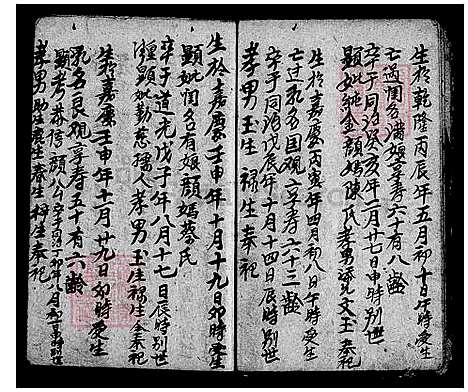 生於乾隆丙辰年五月初十日午時受生
亡過閨名滿娘享壽六十有八齡
卒于同治癸亥年二月廿七日申時別世
顯妣純金顏媽陳氏孝男文玉奉祀
生於嘉慶丙寅年四月初八日午時受生
亡過乳名國觀享壽六十三齡
卒于同治戊辰年十月十四日辰時別世
孝男玉生祿生奉祀
生於嘉慶壬申年十月十九日卯時受生
顯妣閨名有娘顏媽蔡氏
卒于道光戊子年八月十七日辰時別世
顯妣勤慈孺人孝男玉生祿生全奉祀
生於嘉慶壬申年十一月廿九日卯時受生
乳名良觀享壽五十有六齡
顯考恭信顏公
孝男助生應生春生奉祀